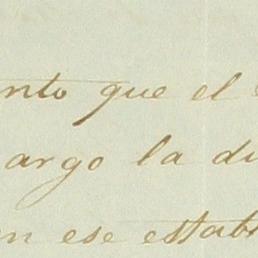 nto que el
argo la di
n ese estab